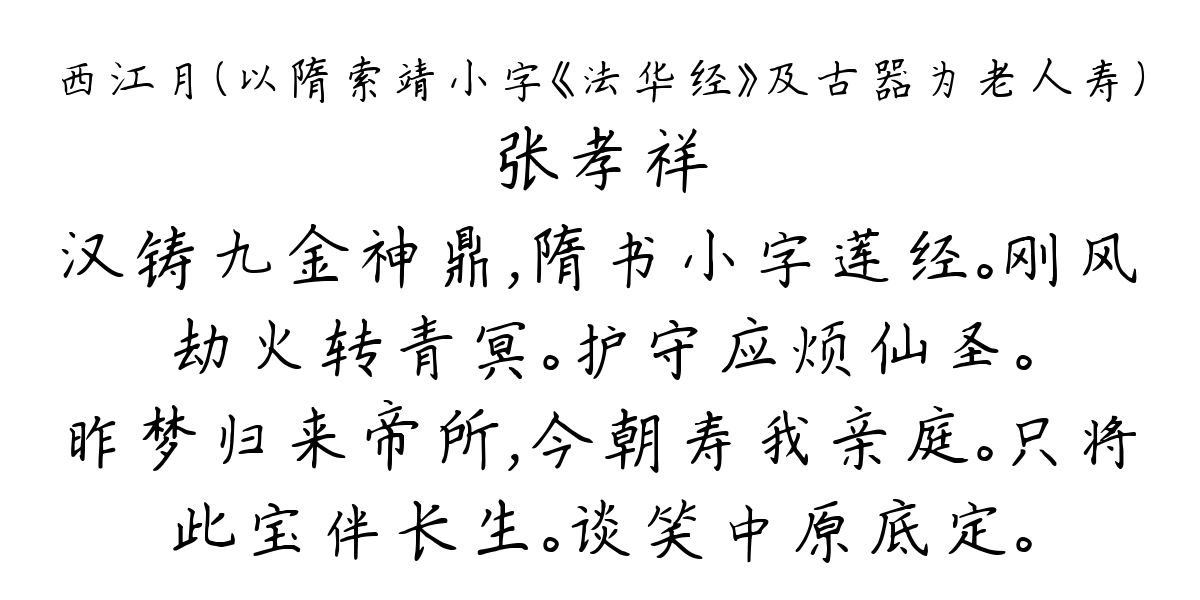 西江月(以隋索靖小字《法华经》及古器为老人寿)
张孝祥
汉铸九金神鼎,隋书小字莲经。刚风
劫火转青冥。护守应烦仙圣。
昨梦归来帝所,今朝寿我亲庭。只将
此宝伴长生。谈笑中原底定。